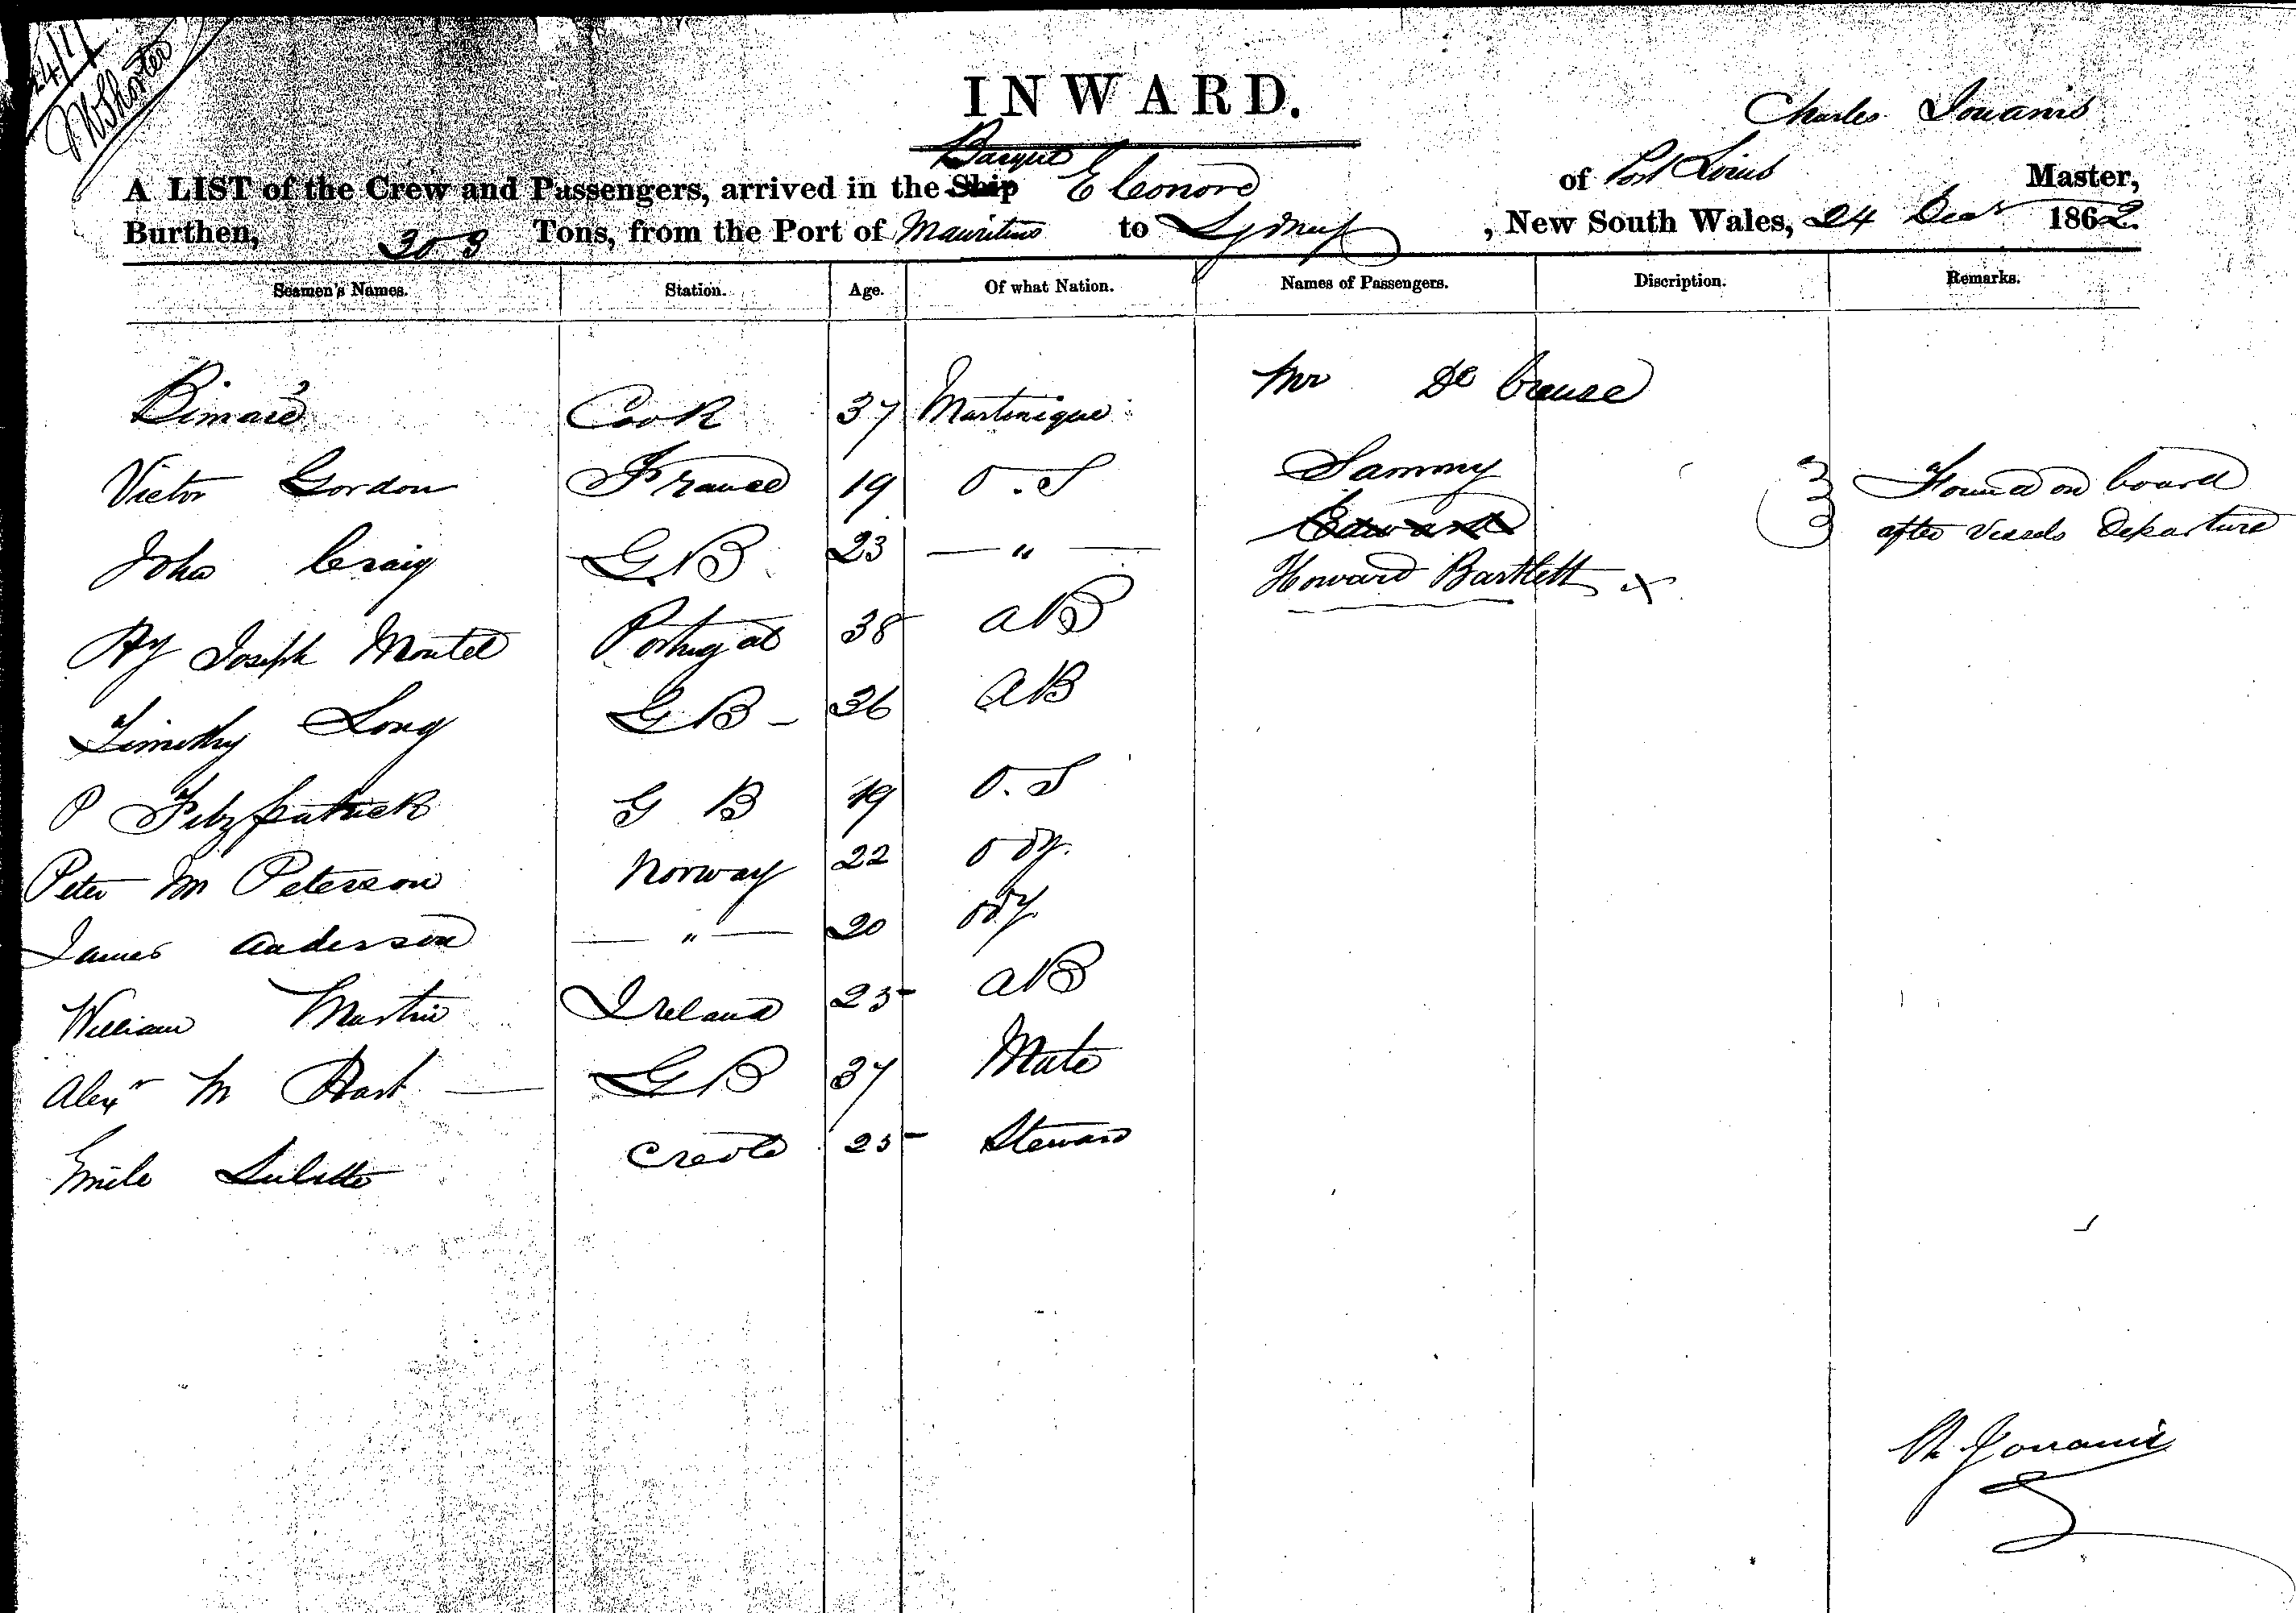 24/11
JW Shorter
INWARD.
Charles Jouanis
Barque
A LIST of the Crew and Passengers, arrived in the Ship Eleonore of Port Louis Master,
Burthen, 303 Tons, from the Port of Mauritius to Sydney, New South Wales, 24 Decr 1862.
Seamen's Names. Station. Age. Of what Nation. Names of Passengers. Discription. Remarks.
Bimard Cook 37 Martinique Mr De Crause
Victor Gordon France 19 O.S Sammy Found on board
Edward after Vessels Departure
John Craig G.B 23 — " — Howard Bartlett x
Hy Joseph Montel Portugal 38 AB
Timothy Long G B - 36 AB
P Fitzpatrick G B 19 O.S
Peter M Peterson Norway 22 Ody.
James Anderson — " — 20 Ody.
William Martin Ireland 25 AB
Alexr M Hart — G B 37 Mate
Emile Lulette Creole 25 Steward
Ch Jouanis